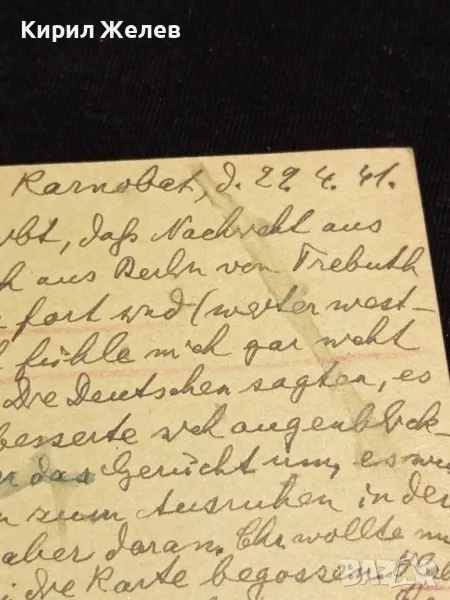 Кирил Желев
Karnobat, d. 29. 4. 41.
bt, daß Nachricht aus
h aus Berlin von Trebuth
fort sind (weiter west-
fühle mich gar nicht
Die Deutschen sagten, es
besserte sich augenblick-
das Gerücht um, es
zum Ausruhen in der
aber daran. Chr. wollte
die Karte begossen.
BAZAR